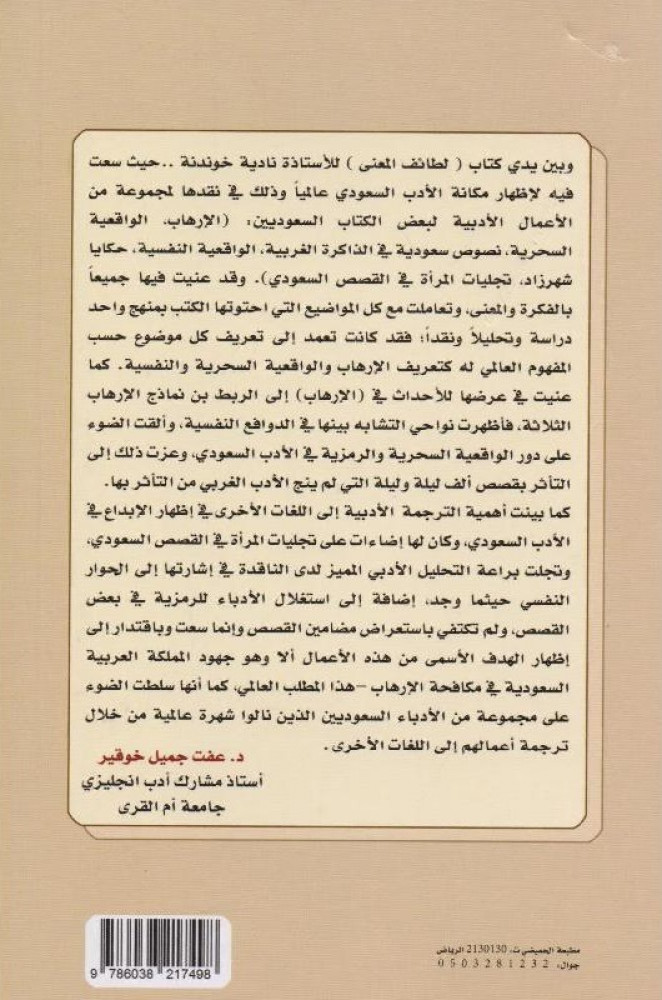 وبين يدي كتاب ( لطائف المعنى ) للأستاذة نادية خوندنة ..حيث سعت
فيه لإظهار مكانة الأدب السعودي عالمياً وذلك في نقدها لمجموعة من
الأعمال الأدبية لبعض الكتاب السعوديين: (الإرهاب، الواقعية
السحرية، نصوص سعودية في الذاكرة الغربية، الواقعية النفسية، حكايا
شهرزاد، تجليات المرأة في القصص السعودي). وقد عنيت فيها جميعاً
بالفكرة والمعنى، وتعاملت مع كل المواضيع التي احتوتها الكتب بمنهج واحد
دراسة وتحليلاً ونقداً؛ فقد كانت تعمد إلى تعريف كل موضوع حسب
المفهوم العالمي له كتعريف الإرهاب والواقعية السحرية والنفسية. كما
عنيت في عرضها للأحداث في (الإرهاب) إلى الربط بن نماذج الإرهاب
الثلاثة، فأظهرت نواحي التشابه بينها في الدوافع النفسية، وألقت الضوء
على دور الواقعية السحرية والرمزية في الأدب السعودي، وعزت ذلك إلى
التأثر بقصص ألف ليلة وليلة التي لم ينج الأدب الغربي من التأثر بها.
كما بينت أهمية الترجمة الأدبية إلى اللغات الأخرى في إظهار الإبداع في
الأدب السعودي، وكان لها إضاءات على تجليات المرأة في القصص السعودي،
وتجلت براعة التحليل الأدبي المميز لدى الناقدة في إشارتها إلى الحوار
النفسي حيثما وجد، إضافة إلى استغلال الأدباء للرمزية في بعض
القصص، ولم تكتفي باستعراض مضامين القصص وإنما سعت وباقتدار إلى
إظهار الهدف الأسمى من هذه الأعمال ألا وهو جهود المملكة العربية
السعودية في مكافحة الإرهاب -هذا المطلب العالمي، كما أنها سلطت الضوء
على مجموعة من الأدباء السعوديين الذين نالوا شهرة عالمية من خلال
ترجمة أعمالهم إلى اللغات الأخرى.
د. عفت جميل خوقير
أستاذ مشارك أدب انجليزي
جامعة أم القرى
مطبعة الحميضي ت، 2130130 الرياض
جوال، 0503281232
9 786038 217498